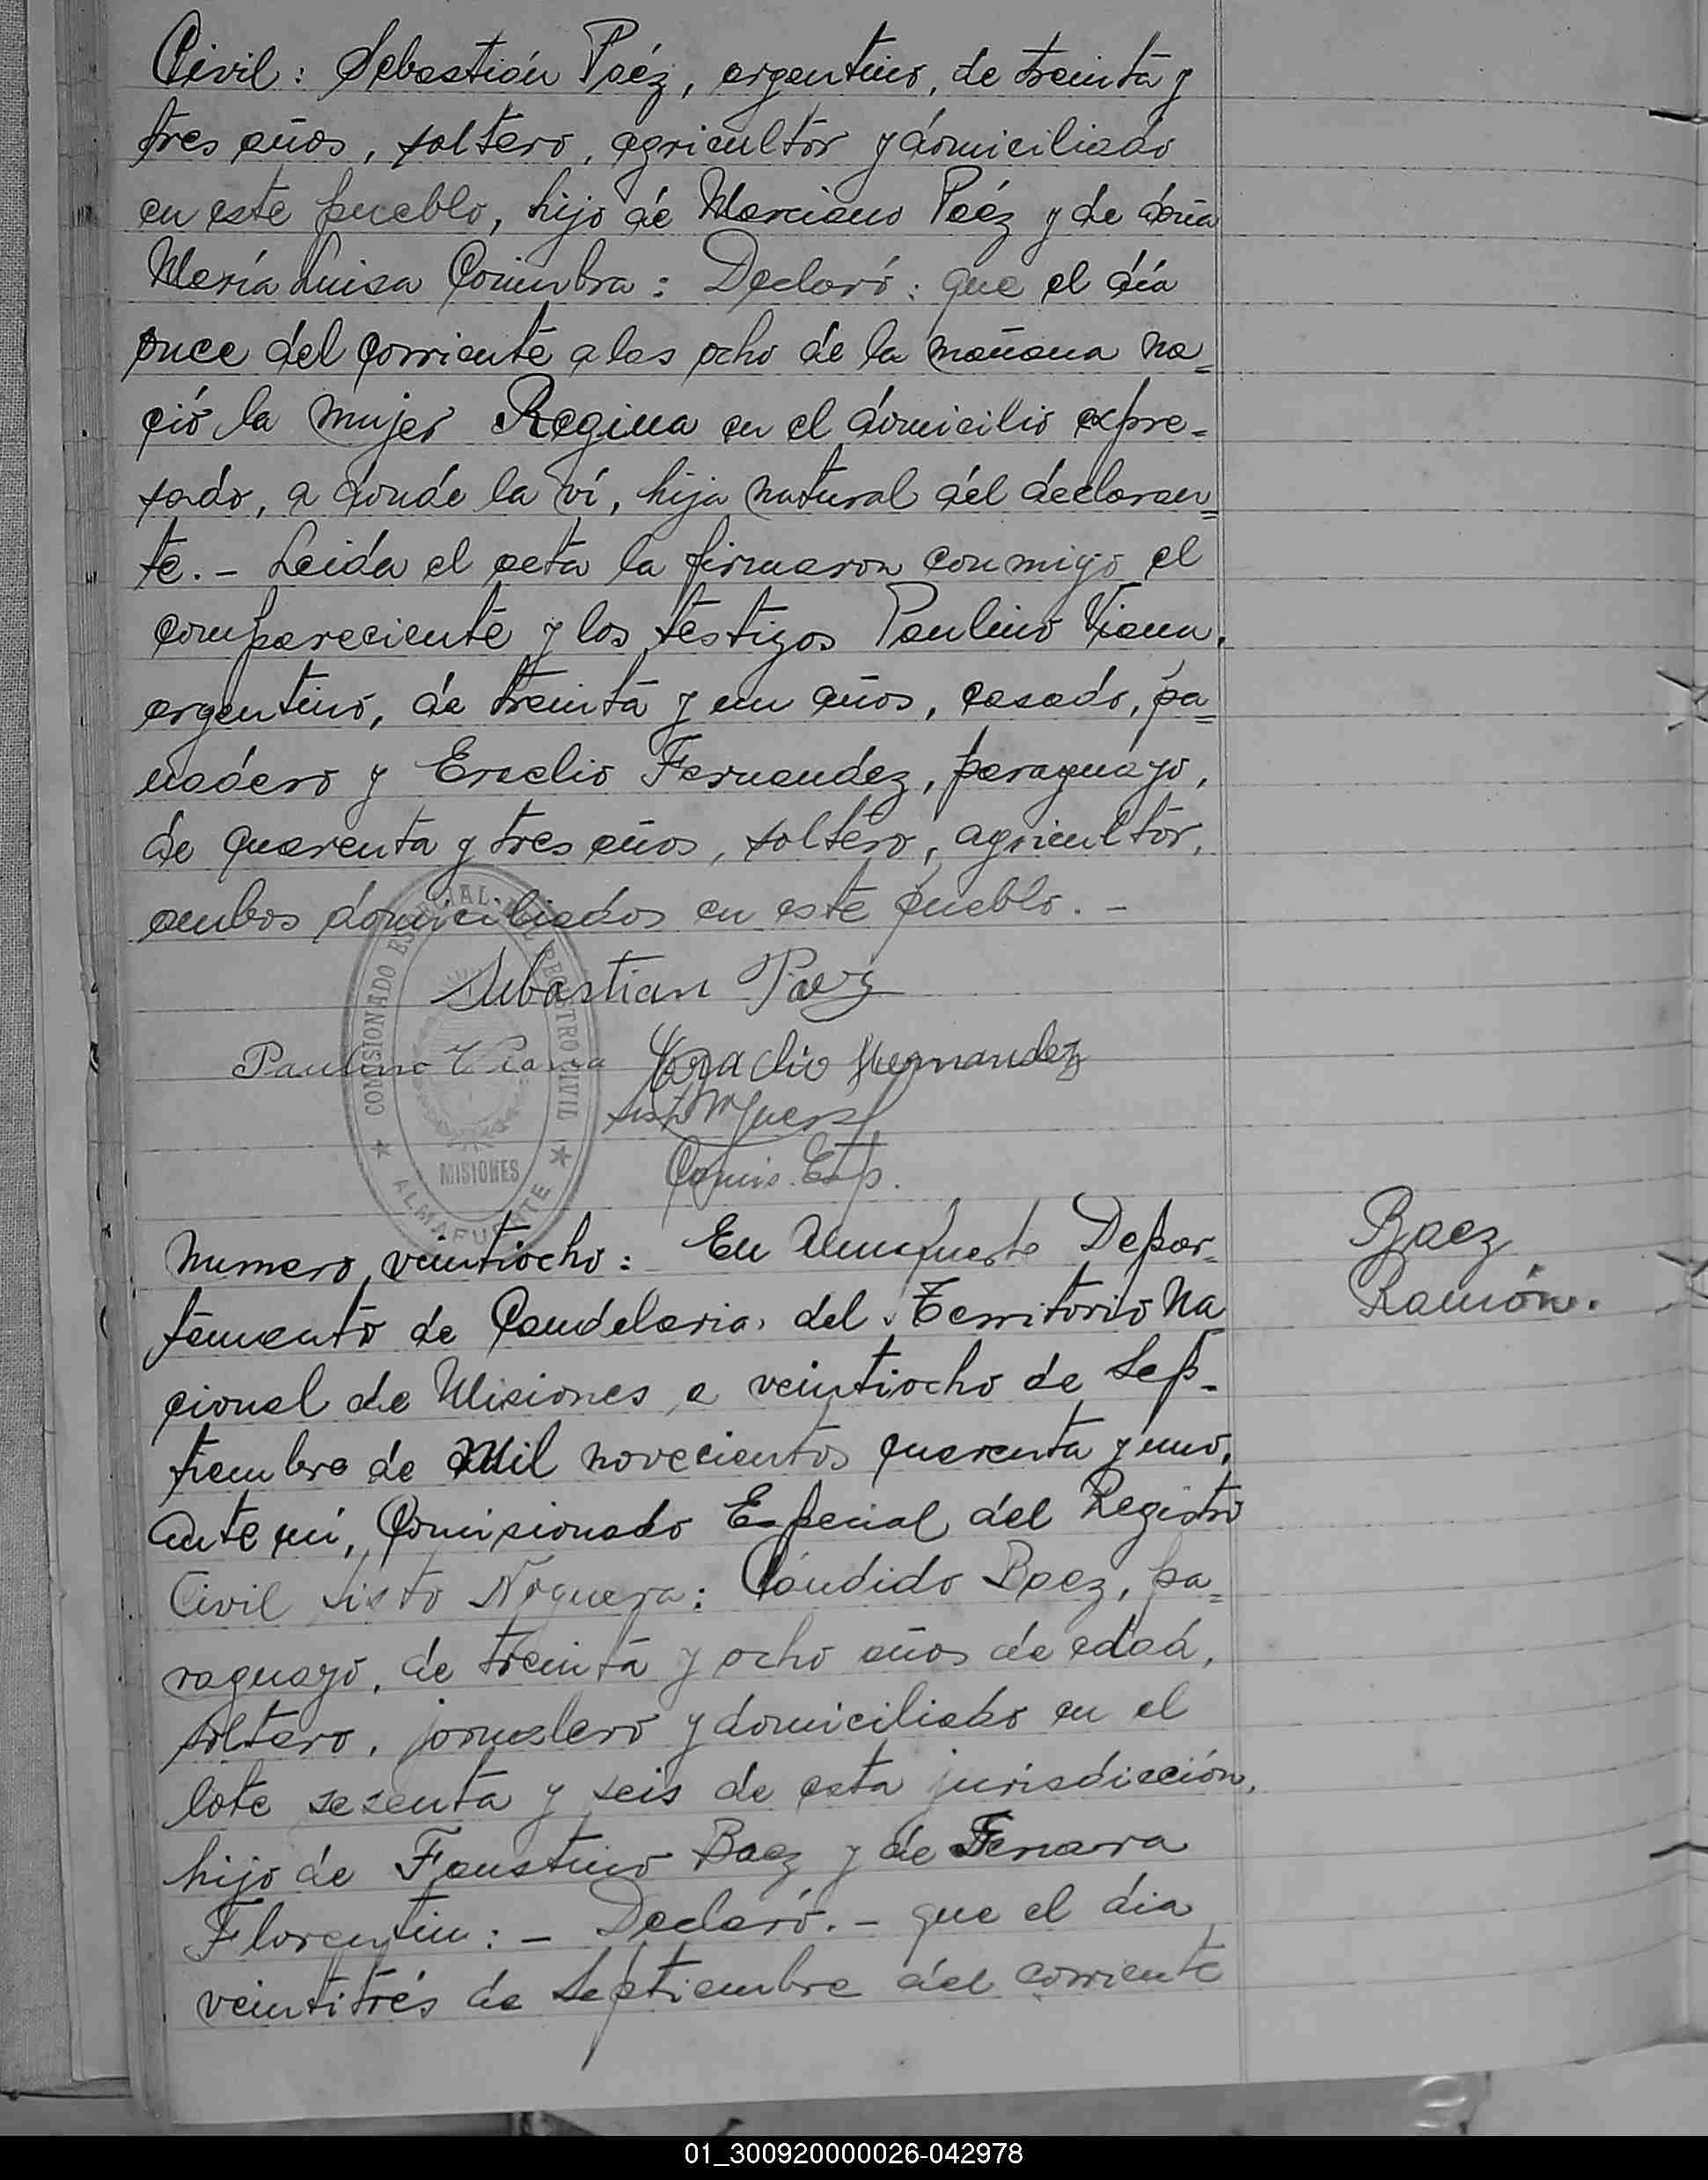 Civil: Sebastián Páez, argentino, de treinta y
tres años, soltero, agricultor y domiciliado
en este pueblo, hijo de Marciano Páez y de doña
María Luisa Coimbra: Declaró: que el día
once del corriente a las ocho de la mañana na=
ció la mujer Regina en el domicilio expre=
sado, a donde la ví, hija natural del declaran=
te.- Leida el acta la firmaron conmigo el
compareciente y los testigos Paulino Viana,
argentino, de treinta y un años, casado, pa=
nadero y Eraclio Fernandez, paraguayo,
de cuarenta y tres años, soltero, agricultor,
ambos domiciliados en este pueblo.-
Sebastian Paez
Paulino Viana Eraclio Hernandez
Comis. Esp.
COMISIONADO ESPECIAL DEL REGISTRO CIVIL
MISIONES
ALMAFUERTE
Numero veintiocho: En Almafuerte Depar-
Baez
tamento de Candelaria, del Territorio Na
Ramón.
cional de Misiones, a veintiocho de Sep-
tiembre de Mil novecientos cuarenta y uno,
ante mi, Comisionado Especial del Registro
Civil Sisto Noguera: Cándido Baez, pa=
raguayo, de treinta y ocho años de edad,
soltero, jornalero y domiciliado en el
lote sesenta y seis de esta jurisdicción,
hijo de Faustino Baez y de
Florentin:- Declaró.- que el dia
veintitrés de Septiembre del corriente
01_300920000026-042978